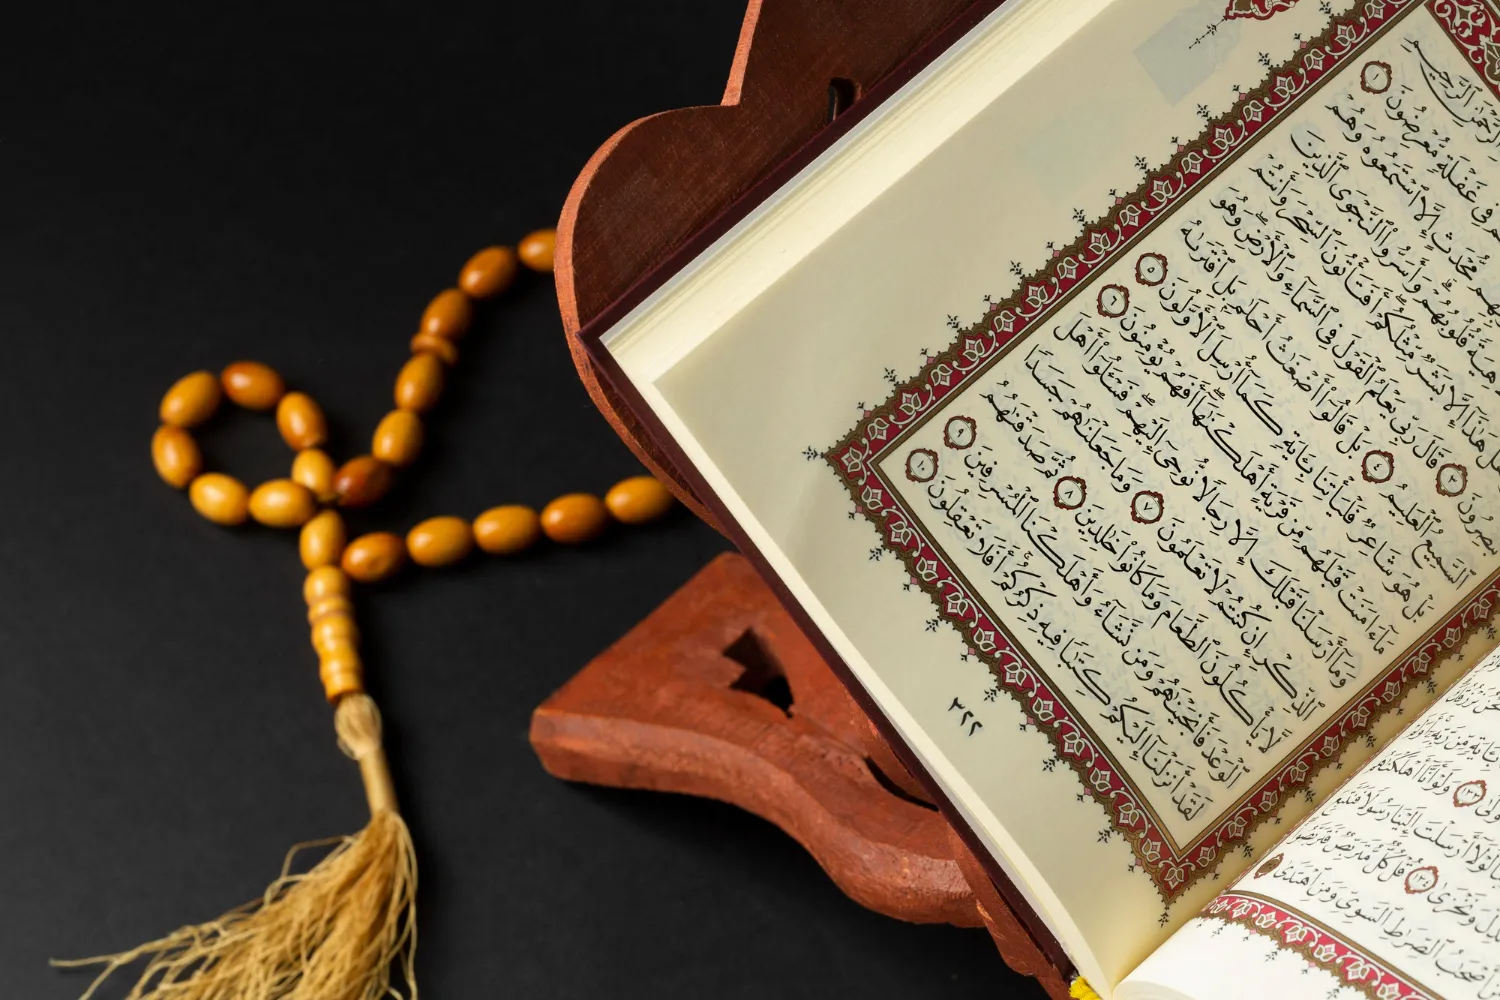 ٱلرَّحْمَٰنِ ٱلرَّحِيمِ
فِى غَفْلَةٍ مُّعْرِضُونَ ١
مُّحْدَثٍ إِلَّا ٱسْتَمَعُوهُ وَهُمْ
قُلُوبُهُمْ وَأَسَرُّوا۟ ٱلنَّجْوَى ٱلَّذِينَ
هَٰذَآ إِلَّا بَشَرٌ مِّثْلُكُمْ أَفَتَأْتُونَ ٱلسِّحْرَ وَأَنتُمْ
تُبْصِرُونَ ٣ قَالَ رَبِّى يَعْلَمُ ٱلْقَوْلَ فِى ٱلسَّمَآءِ وَٱلْأَرْضِ وَهُوَ
ٱلسَّمِيعُ ٱلْعَلِيمُ ٤ بَلْ قَالُوٓا۟ أَضْغَٰثُ أَحْلَٰمٍ بَلِ ٱفْتَرَىٰهُ
بَلْ هُوَ شَاعِرٌ فَلْيَأْتِنَا بِـَٔايَةٍ كَمَآ أُرْسِلَ ٱلْأَوَّلُونَ ٥
مَآ ءَامَنَتْ قَبْلَهُم مِّن قَرْيَةٍ أَهْلَكْنَٰهَآ أَفَهُمْ يُؤْمِنُونَ ٦
وَمَآ أَرْسَلْنَا قَبْلَكَ إِلَّا رِجَالًا نُّوحِىٓ إِلَيْهِمْ فَسْـَٔلُوٓا۟ أَهْلَ
ٱلذِّكْرِ إِن كُنتُمْ لَا تَعْلَمُونَ ٧ وَمَا جَعَلْنَٰهُمْ جَسَدًا
لَّا يَأْكُلُونَ ٱلطَّعَامَ وَمَا كَانُوا۟ خَٰلِدِينَ ٨ ثُمَّ صَدَقْنَٰهُمُ
ٱلْوَعْدَ فَأَنجَيْنَٰهُمْ وَمَن نَّشَآءُ وَأَهْلَكْنَا ٱلْمُسْرِفِينَ ٩
لَقَدْ أَنزَلْنَآ إِلَيْكُمْ كِتَٰبًا فِيهِ ذِكْرُكُمْ أَفَلَا تَعْقِلُونَ ١٠
٣٢٢
بِـَٔايَةٍ مِّن رَّبِّهِۦٓ
١٣٣ وَلَوْ أَنَّآ أَهْلَكْنَٰهُم
لَوْلَآ أَرْسَلْتَ إِلَيْنَا رَسُولًا فَنَتَّبِعَ
وَنَخْزَىٰ ١٣٤ قُلْ كُلٌّ مُّتَرَبِّصٌ فَتَرَبَّصُوا۟
أَصْحَٰبُ ٱلصِّرَٰطِ ٱلسَّوِىِّ وَمَنِ ٱهْتَدَىٰ